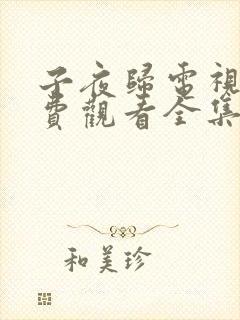 子夜歸電視
費觀看全集
和美珍